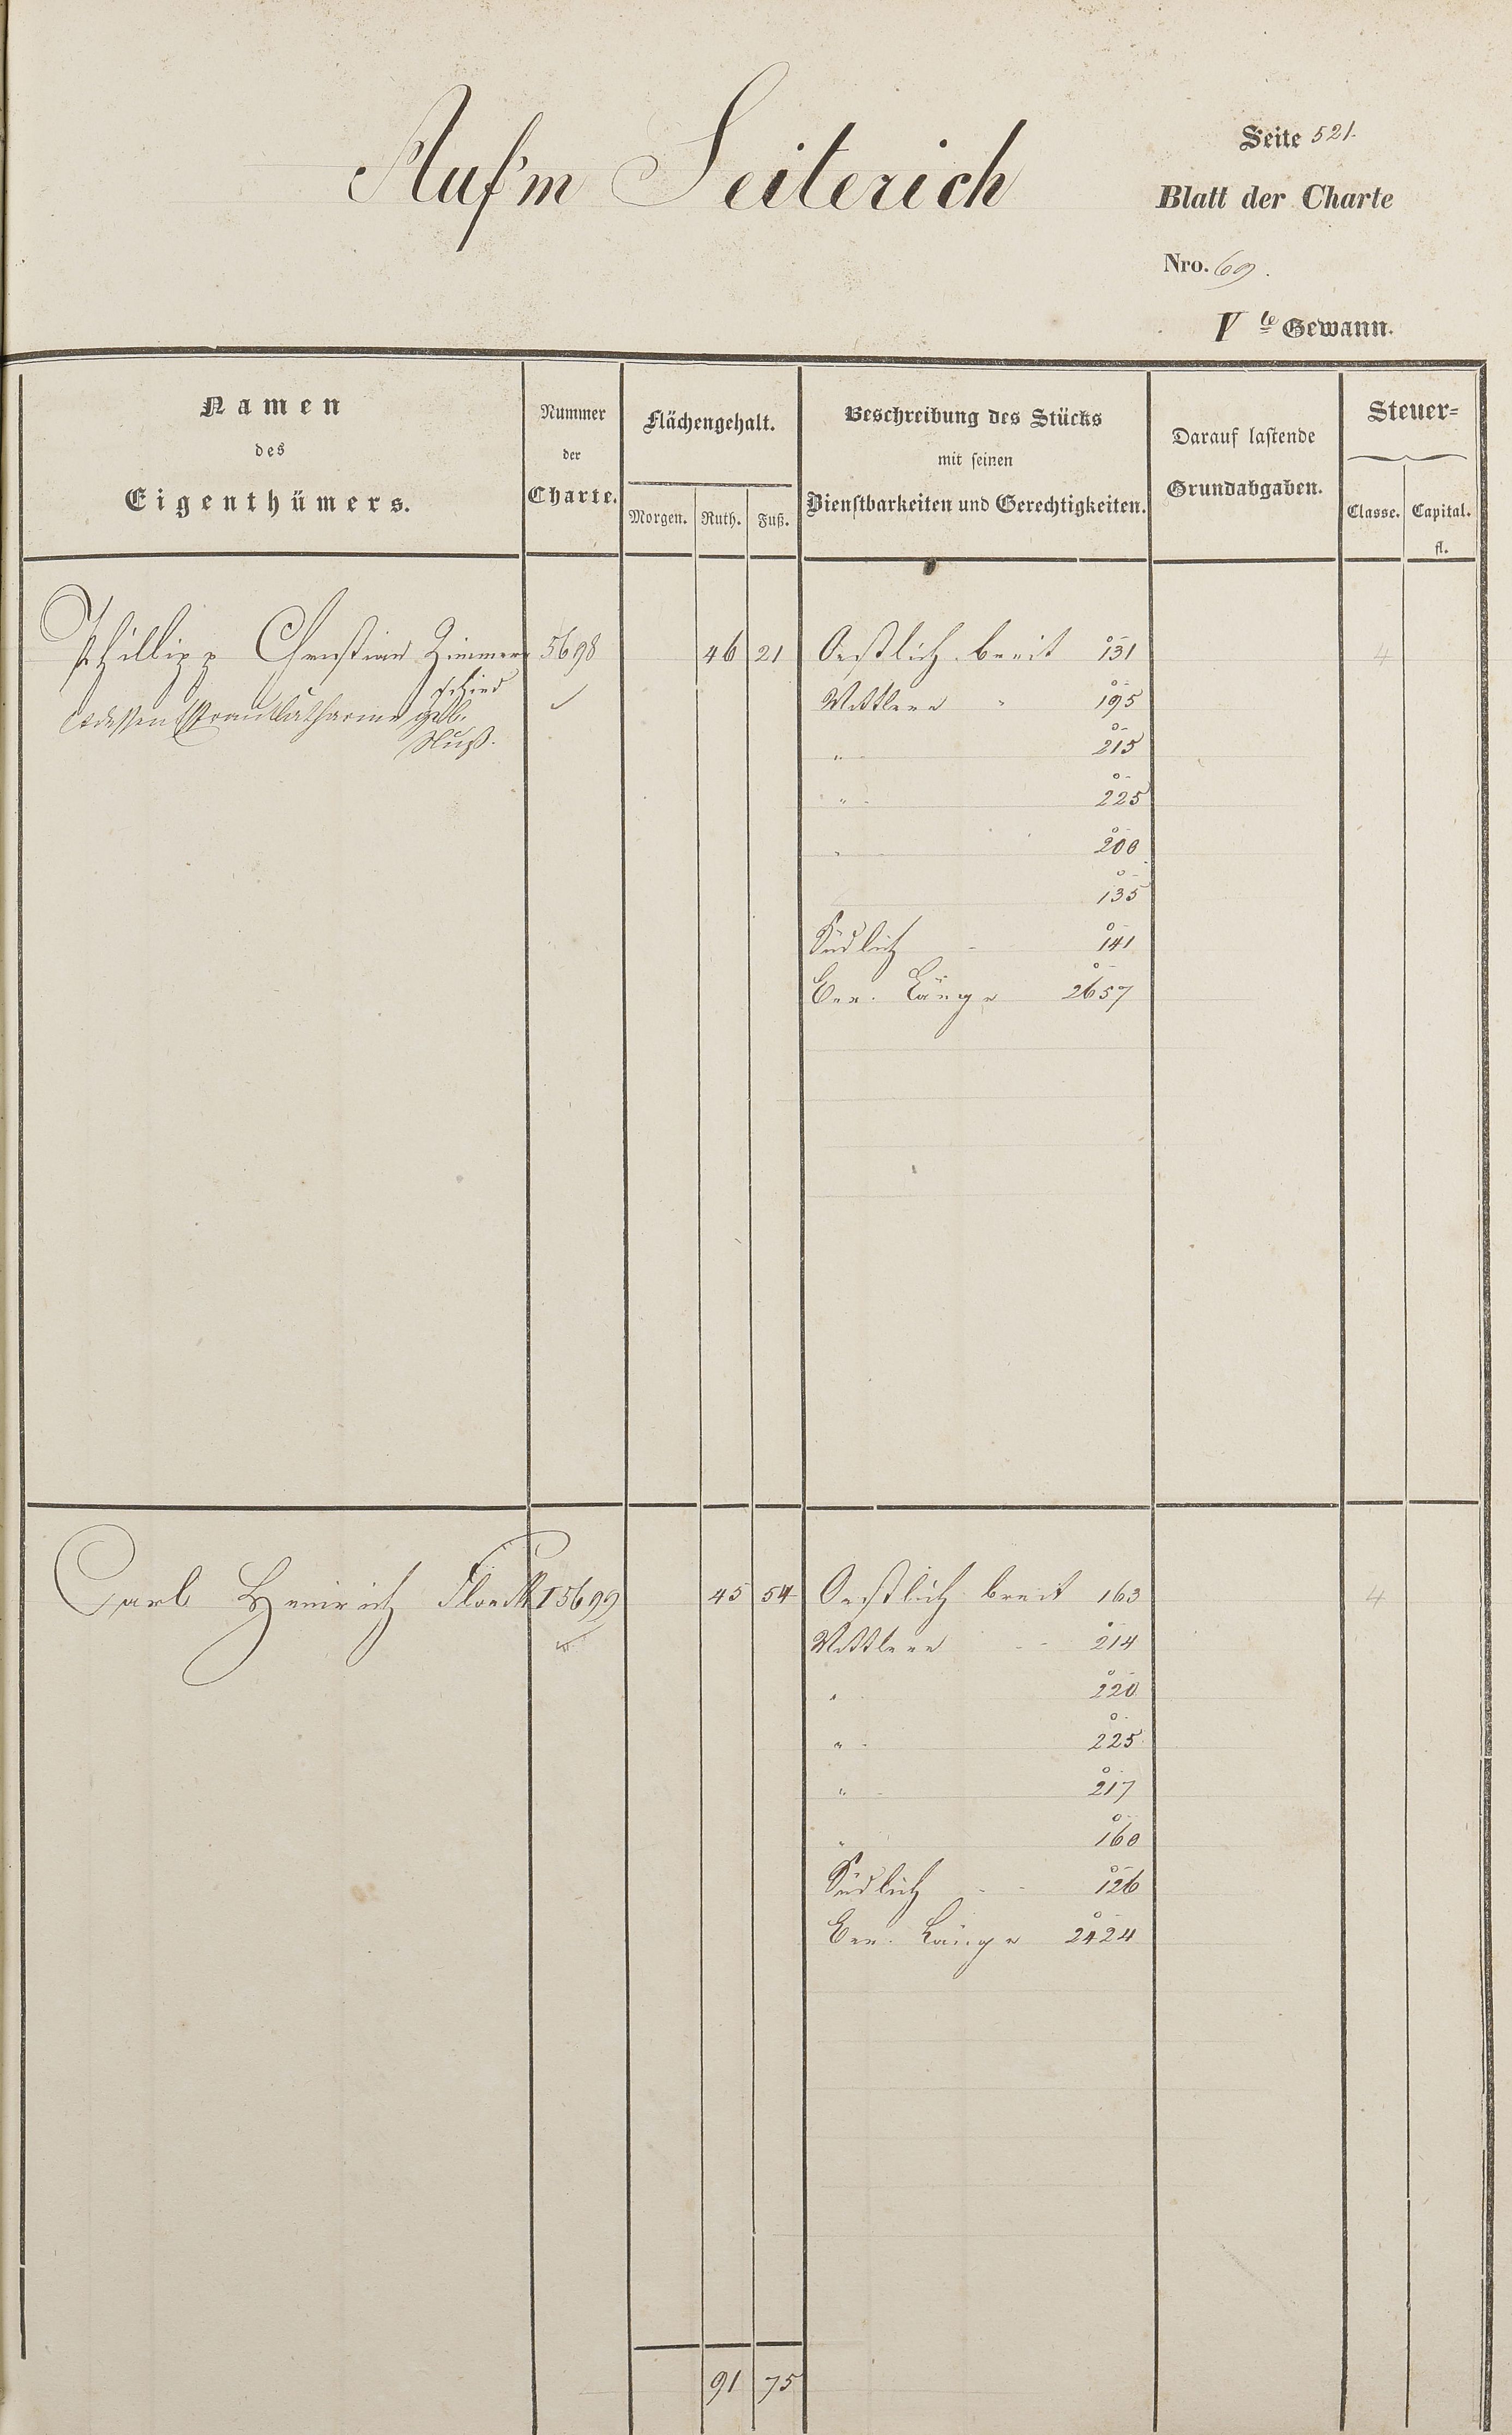 Auf'm Seiterich
Seite 521.
Blatt der Charte
Nro. 69.
V te Gewann.
Namen
des
Eigenthümers.
Nummer
der
Charte.
Flächengehalt.
Morgen. Ruth. Fuß.
Beschreibung des Stücks
mit seinen
Dienstbarkeiten und Gerechtigkeiten.
Darauf lastende
Grundabgaben.
Steuer=
Classe. Capital.
fl.
Phillipp Christian Zimmer 5698 46 21 Oestlich breit 131 4
schied
Mittlere " 195
dessen Catharine geb.
Nuß.
" 215
" 225
" 200
135
Südlich 141
Länge 2657
Carl Heinrich 5699 45 54 Oestlich breit 163 4
Mittlere 214
" 220
" 225
" 217
" 160
Südlich 126
Länge 2424
91 75